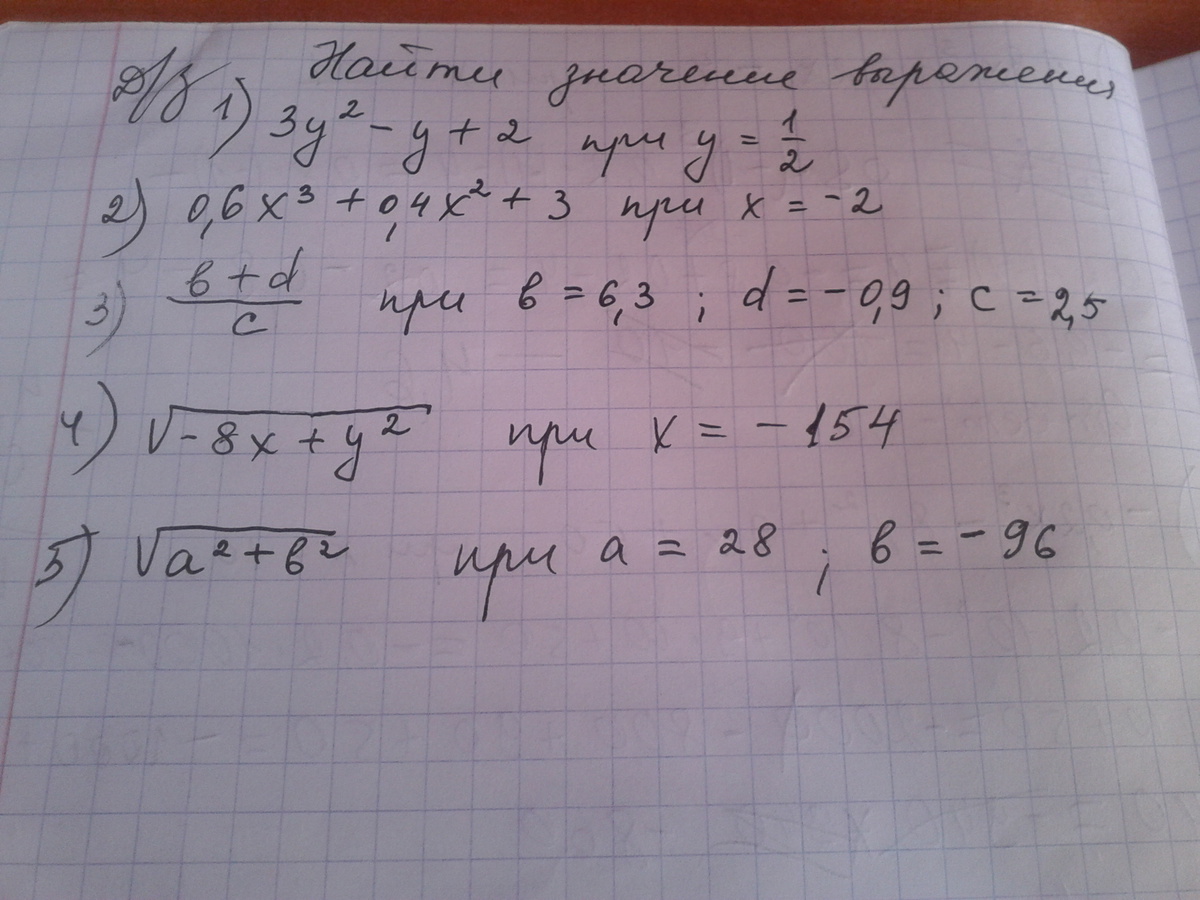 Д/з Найти значение выражения
1) 3y² - y + 2 при y = 1/2
2) 0,6x³ + 0,4x² + 3 при x = -2
3) (b + d)/c при b = 6,3 ; d = -0,9 ; c = 2,5
4) √(-8x + y²) при x = -154
5) √(a² + b²) при a = 28 ; b = -96